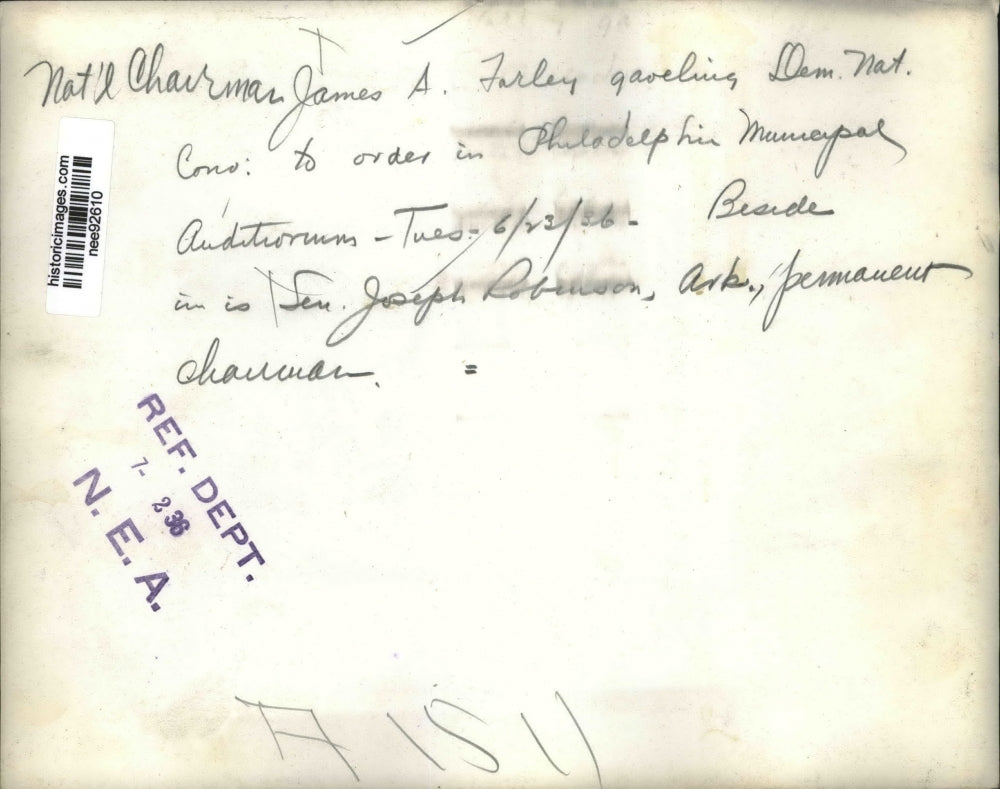 Nat'l Chairman James A. Farley gaveling Dem. Nat.
Conv. to order in Philadelphia Municipal
Auditorium - Tues. 6/23/36 - Beside
im is Sen. Joseph Robinson, Ark., permanent
chairman. =
historicimages.com
nee92610
REF. DEPT.
7- 2 36
N. E. A.